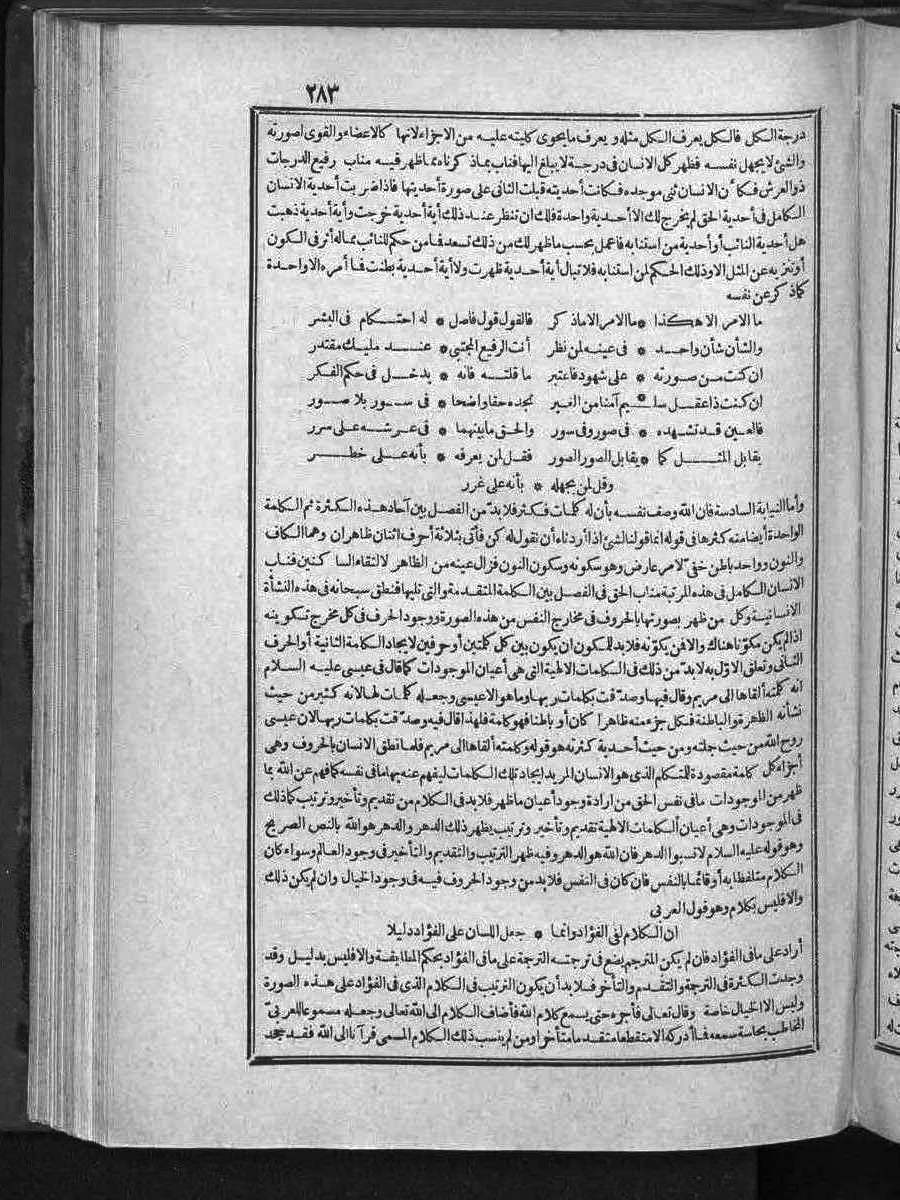 ٢٨٣
درجة الكل فالكل يعرف الكل مثله ويعرف ما يحوى كليته عليه من الاجزاء لانها كالاعضاء والقوى لصورته
والشئ لا يجهل نفسه فظهر كل الانسان فى درجة لا يبلغ اليها فناب بماذكرناه مما ظهر فيه مناب رفيع الدرجات
ذو العرش فكأن الانسان ثنى موجده فكانت أحديته قبلت الثانى على صورة أحديتها فاذا ضربت أحدية الانسان
الكامل فى أحدية الحق لم يخرج لك الا أحدية واحدة فلك ان تنظر عند ذلك أية أحدية خرجت وأية أحدية ذهبت
هل أحدية النائب أو أحدية من استنابه فاعمل بحسب ما ظهر لك من ذلك تسعد فما من حكم للنائب مما له أثر فى الكون
أو تنزيه عن المثل الا وذلك الحكم لمن استنابه فلا تبال أية أحدية ظهرت ولا أية أحدية بطنت فما أمره الا واحدة
كما ذكر عن نفسه
ما الامر الا هكذا * ما الامر الا ما ذكر فالقول قول فاصل * له احتكام فى البشر
والشأن شأن واحد * فى عينه لمن نظر أنت الرفيع المجتبى * عند مليك مقتدر
ان كنت من صورته * على شهود فاعتبر ما قلته فانه * يدخل فى حكم الفكر
ان كنت ذا عقل سليم * آمنا من الغير تجده حقا واضحا * فى سور بلا صور
فالعين قد تشهده * فى صور وفى سور والحق ما بينهما * فى عرشه على سرر
يقابل المثل كما * يقابل الصور الصور فقل لمن يعرفه * بأنه على خطر
وقل لمن يجهله * بأنه على غرر
وأما النيابة السادسة فان الله وصف نفسه بأن له كلمات فكثر فلابد من الفصل بين آحاد هذه الكثرة ثم الكلمة
الواحدة أيضا منه كثرها فى قوله انما قولنا لشئ اذا أردناه أن نقول له كن فأتى بثلاثة أحرف اثنان ظاهران وهما الكاف
والنون وواحد باطن خفى لامر عارض وهو سكونه وسكون النون فزال عينه من الظاهر لالتقاء الساكنين فناب
الانسان الكامل فى هذه المرتبة مناب الحق فى الفصل بين الكلمة المتقدمة والتى تليها فنطق سبحانه فى هذه النشأة
الانسانية وكل من ظهر بصورتها بالحروف فى مخارج النفس من هذه الصورة ووجود الحرف فى كل مخرج تكوينه
اذا لم يكن مكوّنا هناك والا فمن يكوّنه فلابد للمكون ان يكون بين كل كلمتين أو حرفين لايجاد الكلمة الثانية أو الحرف
الثانى وتعلق الاوّل به لا بدّ من ذلك فى الكلمات الالهية التى هى أعيان الموجودات كما قال فى عيسى عليه السلام
انه كلمته ألقاها الى مريم وقال فيها وصدّقت بكلمات ربها وما هو الا عيسى وجعله كلمات لها لانه كثير من حيث
نشأته الظاهرة والباطنة فكل جزء منه ظاهرا كان أو باطنا فهو كلمة فلهذا قال فيه وصدّقت بكلمات ربها لان عيسى
روح الله من حيث جملته ومن حيث أحدية كثرته هو قوله وكلمته ألقاها الى مريم فلما نطق الانسان بالحروف وهى
أجزاء كل كلمة مقصودة للمتكلم الذى هو الانسان المريد ايجاد تلك الكلمات ليفهم عنه بها ما فى نفسه كما فهم عن الله بما
ظهر من الموجودات ما فى نفس الحق من ارادة وجود أعيان ما ظهر فلابد فى الكلام من تقديم وتأخير وترتيب كما ذلك
فى الموجودات وهى أعيان الكلمات الالهية تقديم وتأخير وترتيب يظهر ذلك الدهر والدهر هو الله بالنص الصريح
وهو قوله عليه السلام لا تسبوا الدهر فان الله هو الدهر وفيه ظهر الترتيب والتقديم والتأخير فى وجود العالم وسواء كان
الكلام متلفظا به أو قائما بالنفس فان كان فى النفس فلابد من وجود الحروف فيه فى وجود الخيال وان لم يكن ذلك
والا فليس بكلام وهو قول العربى
ان الكلام لفى الفؤاد وانما * جعل اللسان على الفؤاد دليلا
أراد على ما فى الفؤاد فان لم يكن المترجم يضع فى ترجمته الترجمة على ما فى الفؤاد بحكم المطابقة والا فليس بدليل وقد
وجدت الكثرة فى الترجمة والتقدم والتأخر فلابد أن يكون الترتيب فى الكلام الذى فى الفؤاد على هذه الصورة
وليس الا الخيال خاصة وقال تعالى فأجره حتى يسمع كلام الله فأضاف الكلام الى الله تعالى وجعله مسموعا للعربىّ
المخاطب بحاسة سمعه فما أدركه الا متقطعا متقدما متأخرا ومن لم ينسب ذلك الكلام المسمى قرآنا الى الله فقد جحد